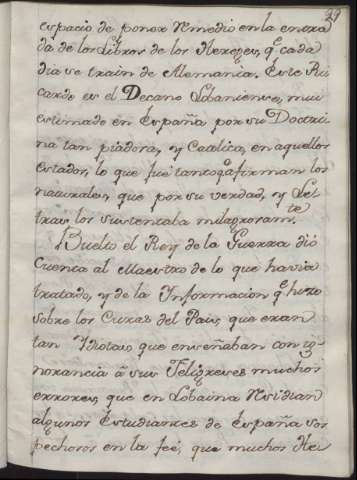 29
espacio de poner remedio en la entra
da de los Libros de los Hereges, q.e cada
dia se train de Alemania. Este Ri
cardo es el Decano Lobaniense, mui
estimado en España por su Doctri
na tan piadora, y Catolica, en aquellos
estados, lo que fué tanto q.e afirman los
naturales, que por su verdad, y Let
tras los sustentaba milagroram.te
Buelto el Rey de la Guerra dió
Cuenta al Maestro de lo que havia
tratado, y de la Informacion q.e hizo
sobre los Curas del Pais, que eran
tan Idiotas que enseñaban con ig-
norancia á sus Feligreses muchos
errores, que en Lobaina residian
algunos Estudiantes de España sos
pechosos en la feé, que muchos He